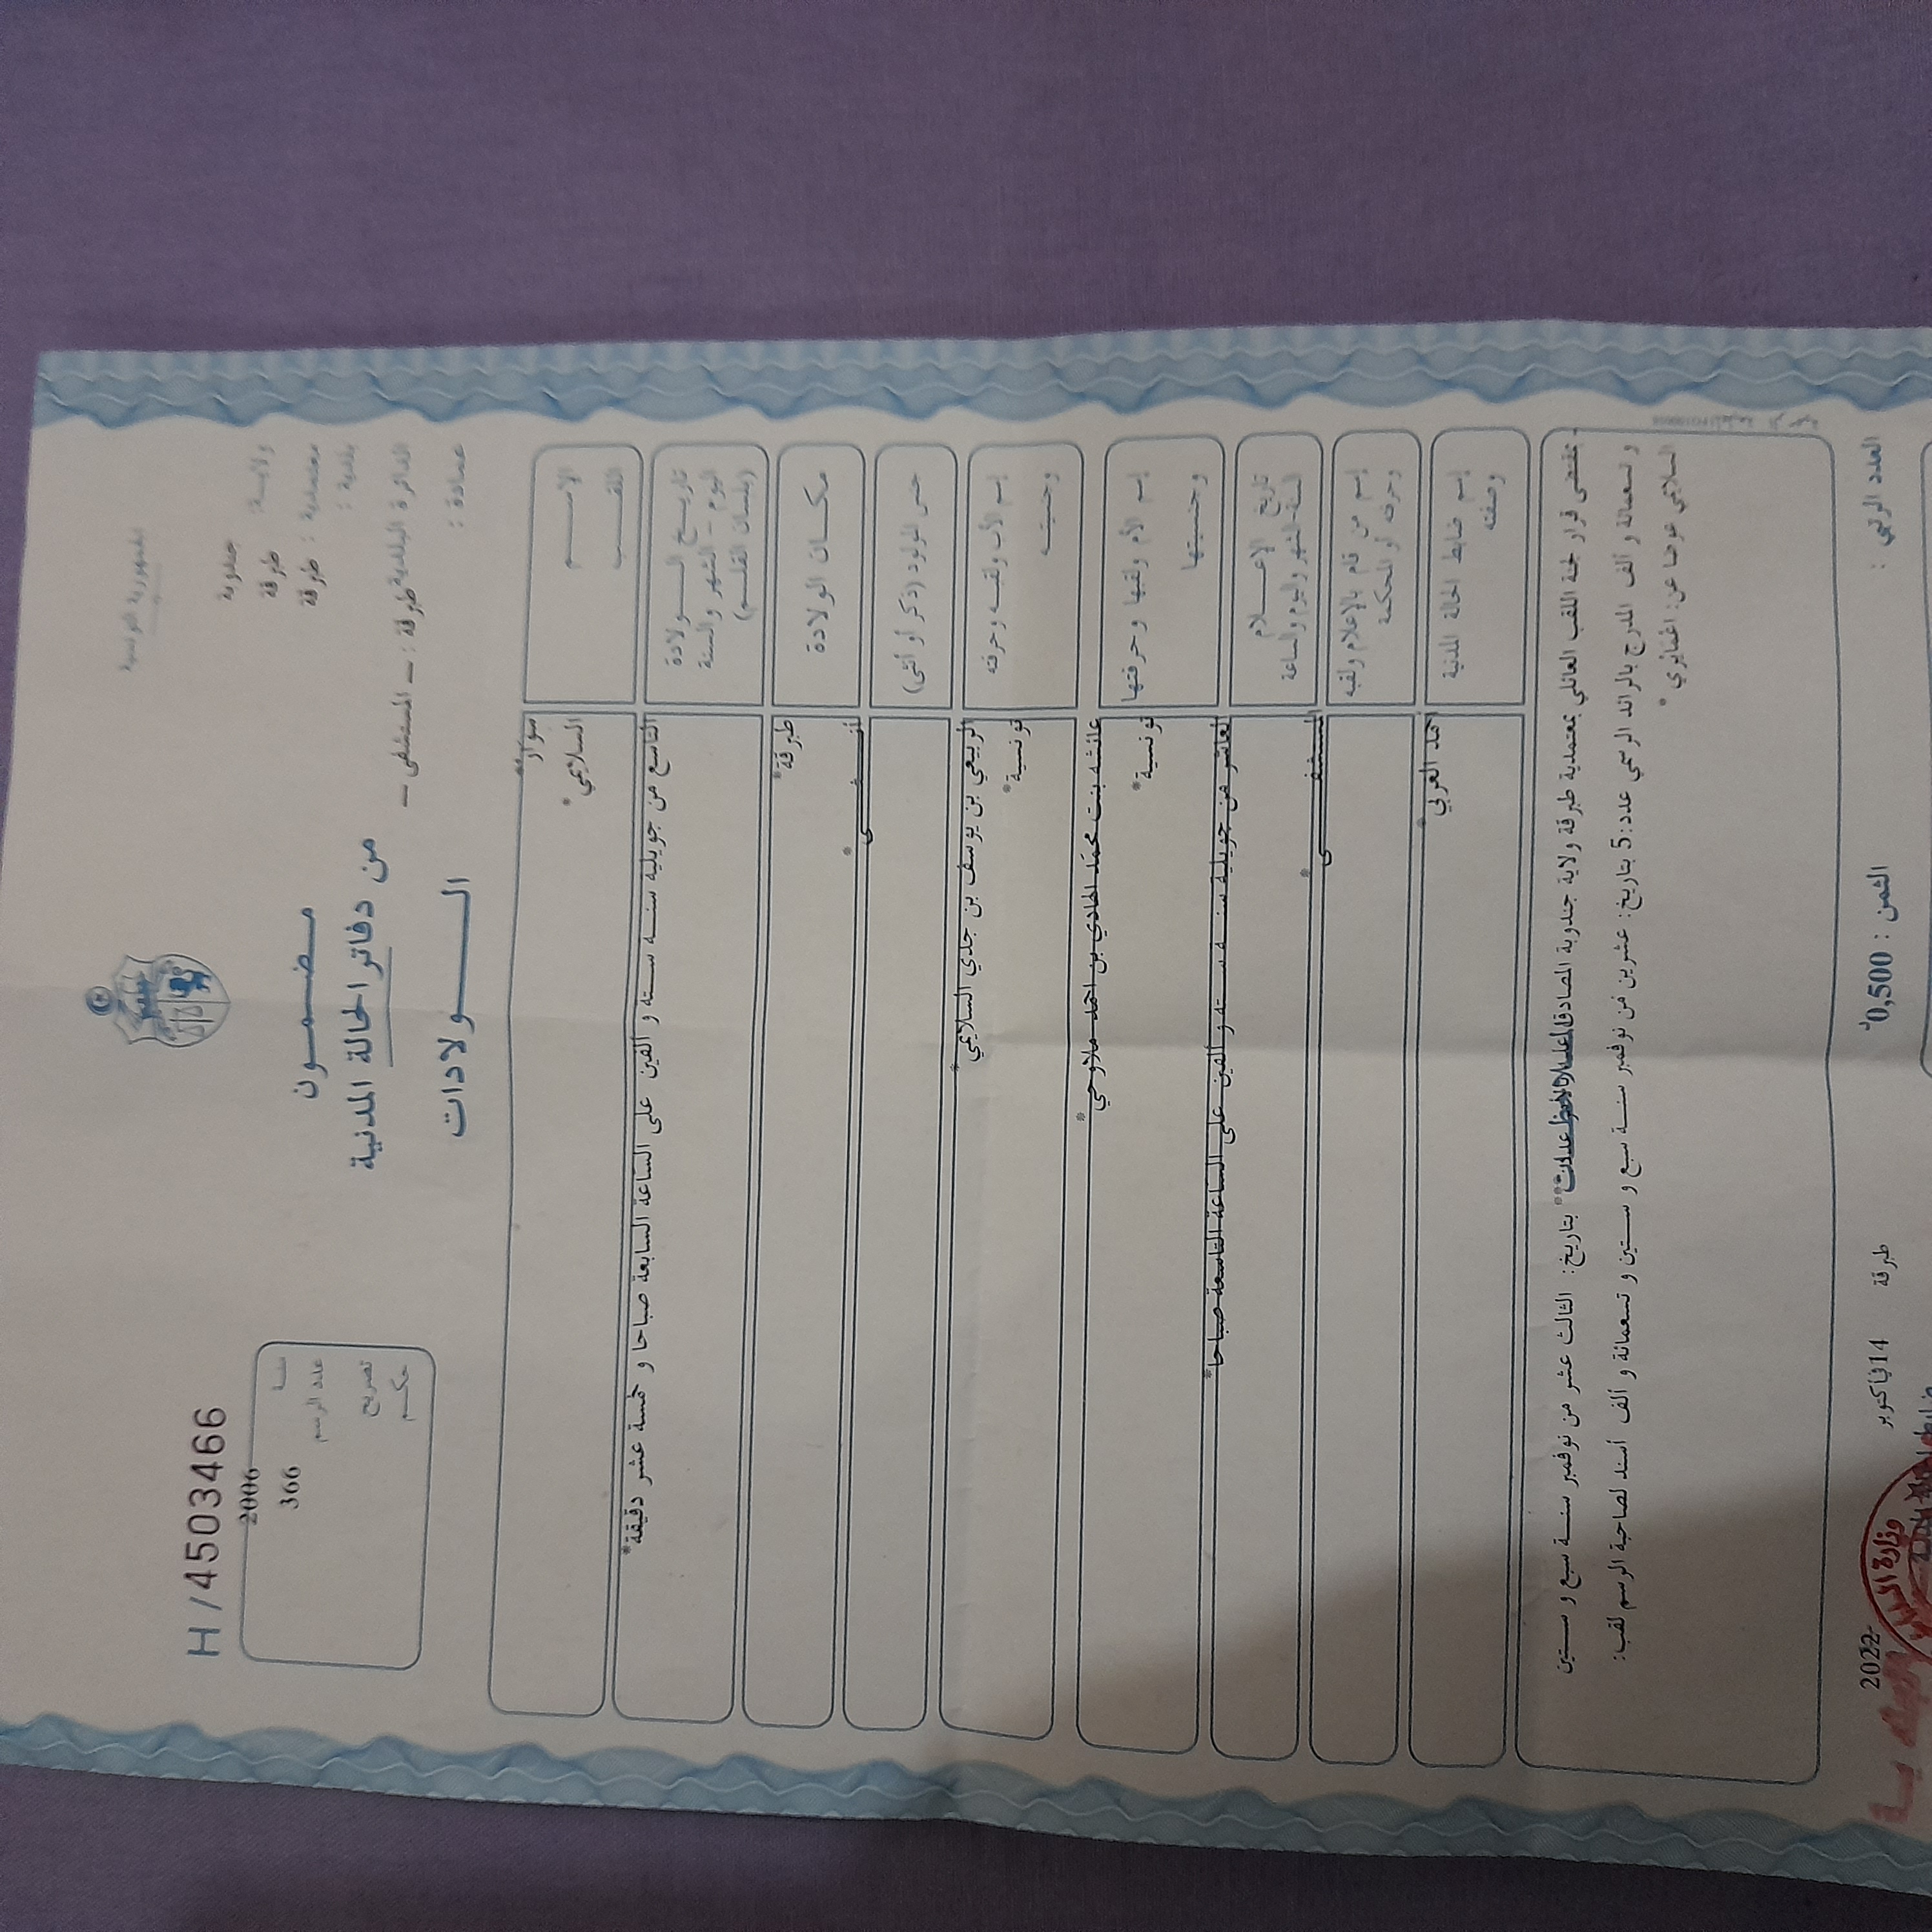 الجمهورية التونسية
H / 4503466
ولايـــة: جندوبة
معتمدية : طبرقة
بلدية : طبرقة
الدائرة البلدية: طبرقة - المستشفى -
عمادة :
مضمــــون
من دفاتر الحالة المدنية
الـــــولادات
سنـــة 2006
عدد الرسم 366
تصريح
حكـــم
الإســــم
اللقـــب
سوار*
السلايمي*
تاريـــخ الـــولادة
اليوم - الشهر والسنة
(بلسان القلـــم)
التاسع من جويلية سنـــة ستـــة و ألفين على الساعة السابعة صباحا و خمسة عشر دقيقة*
مكـــان الولادة
طبرقة*
جنس المولود (ذكر أو أنثى)
أنـــثـــى*
إسم الأب ولقبـــه وحرفته
وجنسيتـــه
الربيعي بن يوسف بن جدي السلايمي*
تونسية*
إسم الأم ولقبها وحرفتها
وجنسيتها
عائشة بنت محمد الهادي بن احمد ملاوحي*
تونسية*
تاريخ الإعـــلام
السنة-الشهر واليوم والساعة
العاشر من جويلية سنـــة ستـــة و ألفين على الساعة التاسعة صباحا*
إسم من قام بالإعلام ولقبه
وحرفته أو المحكمة
المستشفـــى*
إسم ضابط الحالة المدنية
وصفته
احمد العربي*
بمقتضى قرار لجنة اللقب العائلي بمعتمدية طبرقة ولاية جندوبة المصادق بتاريخ: الثالث عشر من نوفمبر سنـــة سبع و ستين
و تسعمائة و ألف المدرج بالرائد الرسمي عدد:5 بتاريخ: عشرين من نوفمبر سنـــة سبع و ستين و تسعمائة و ألف أسند لصاحبة الرسم لقب:
السلايمي عوضا عن:
العدد الرتبي :
الثمن : 0,500د
طبرقة في 14 أكتوبر 2022